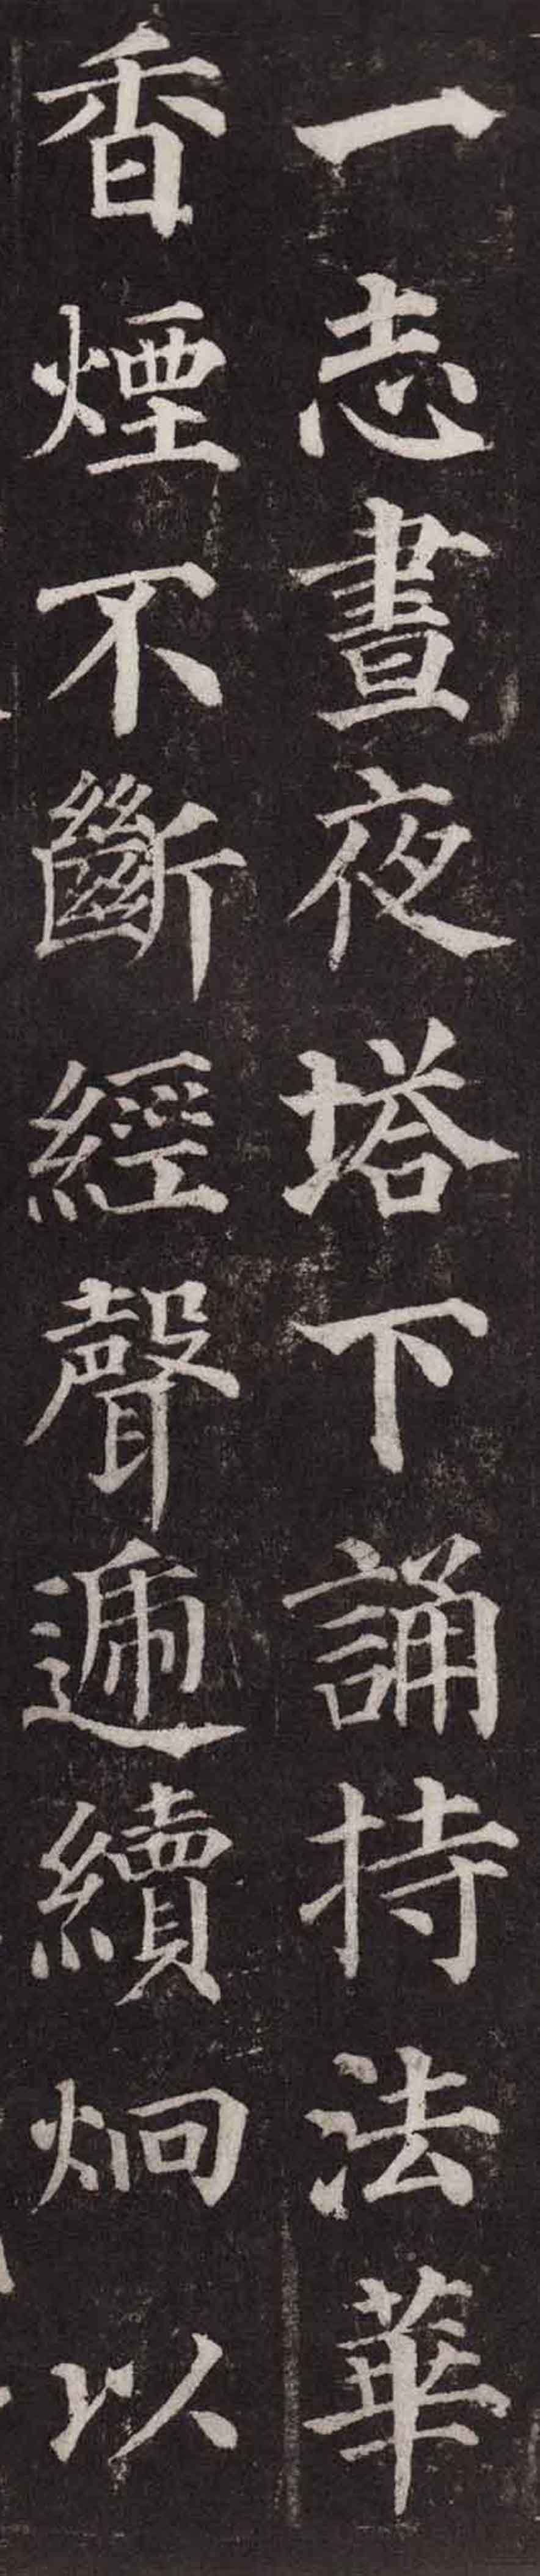 一志晝夜塔下誦持法華
香煙不斷經聲遞續炯以